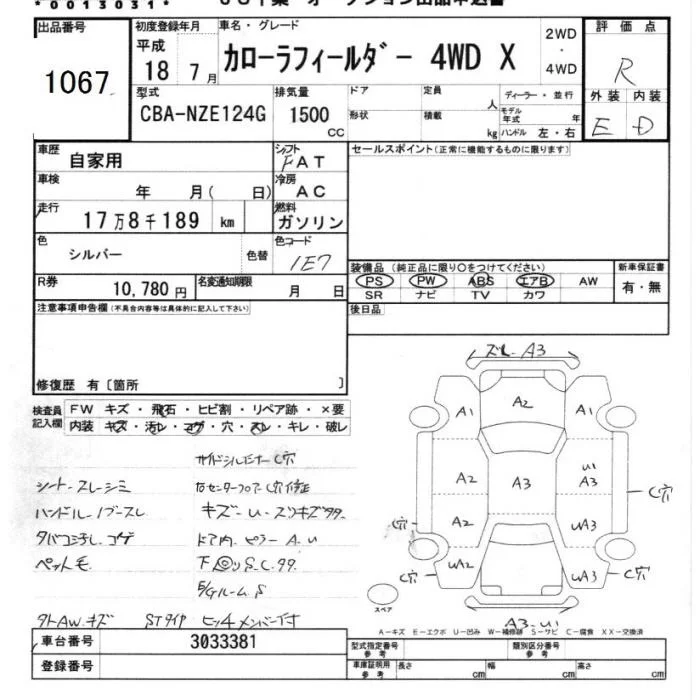 *0013031*
出品番号
1067
初度登録年月
平成
18 7月
車名・グレード
カローラフィールダー 4WD X
2WD
・
4WD
評価点
R
外装 内装
E D
型式
CBA-NZE124G
排気量
1500
CC
ドア
形状
定員
人
積載
kg
ディーラー・並行
モデル年式 年
ハンドル 左・右
車歴
自家用
シフト
FAT
車検
年 月( 日)
冷房
AC
走行
17万8千189 km
燃料
ガソリン
色
シルバー
色替
色コード
1E7
R券
10,780円
名変通知期限
月 日
セールスポイント(正常に機能するものに限ります)
装備品(純正品に限り○をつけてください)
新車保証書
PS PW ABS エアB AW
有・無
SR ナビ TV カワ
後日品
注意事項申告欄(不具合内容等は具体的に記入して下さい)
修復歴 有〔箇所 〕
検査員記入欄
FW キズ・飛石・ヒビ割・リペア跡・×要
内装 キズ・汚レ・コゲ・穴・スレ・キレ・破レ
サイドシルインナーC穴
シート・スレ・シミ
右センターフロアーC穴修正
ハンドル・ノブ・スレ
タバコ臭し、コゲ
ドア内、ピラーA.U
ペット毛
下回りS.C.
E/Gルーム.S
外AW.キズ
STタイヤ
ズレ-A3
A1
A2
A1
A2
A3
A3
C穴
C穴
A2
UA3
C穴
UA2
UA3
C穴
スペア
A3-U1
A-キズ E-エクボ U-凹み W-補修跡 S-サビ C-腐食 XX-交換済
車台番号
3033381
登録番号
型式指定番号
参考
類別区分番号
参考
車庫証明用
参考
長さ cm
幅 cm
高さ cm